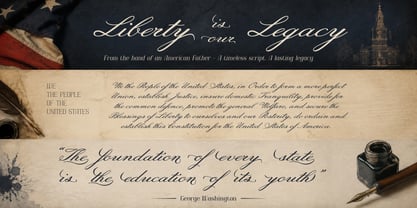 Liberty is our Legacy
From the hand of an American Father · A timeless script. A lasting legacy
WE
THE PEOPLE
OF THE
UNITED STATES
We the People of the United States, in Order to form a more perfect
Union, establish Justice, insure domestic Tranquility, provide for
the common defence, promote the general Welfare, and secure the
Blessings of Liberty to ourselves and our Posterity, do ordain and
establish this Constitution for the United States of America.
"The foundation of every state
is the education of its youth"
George Washington